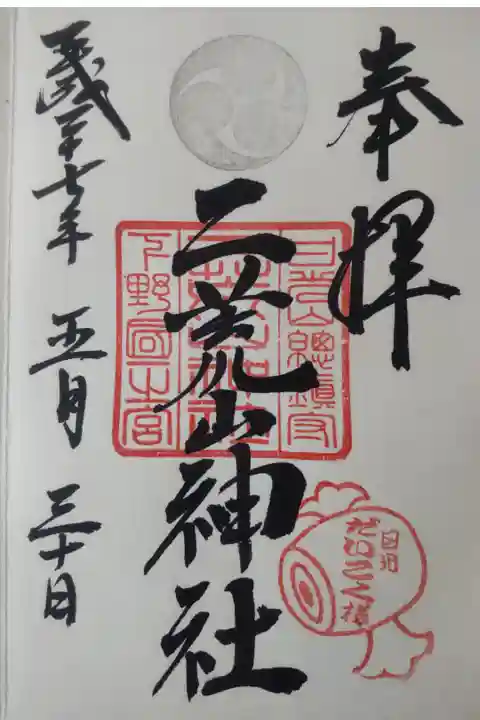 奉拝
日光山總鎮守
二荒山神社
下野國一之宮
平成二十七年 五月 三十日